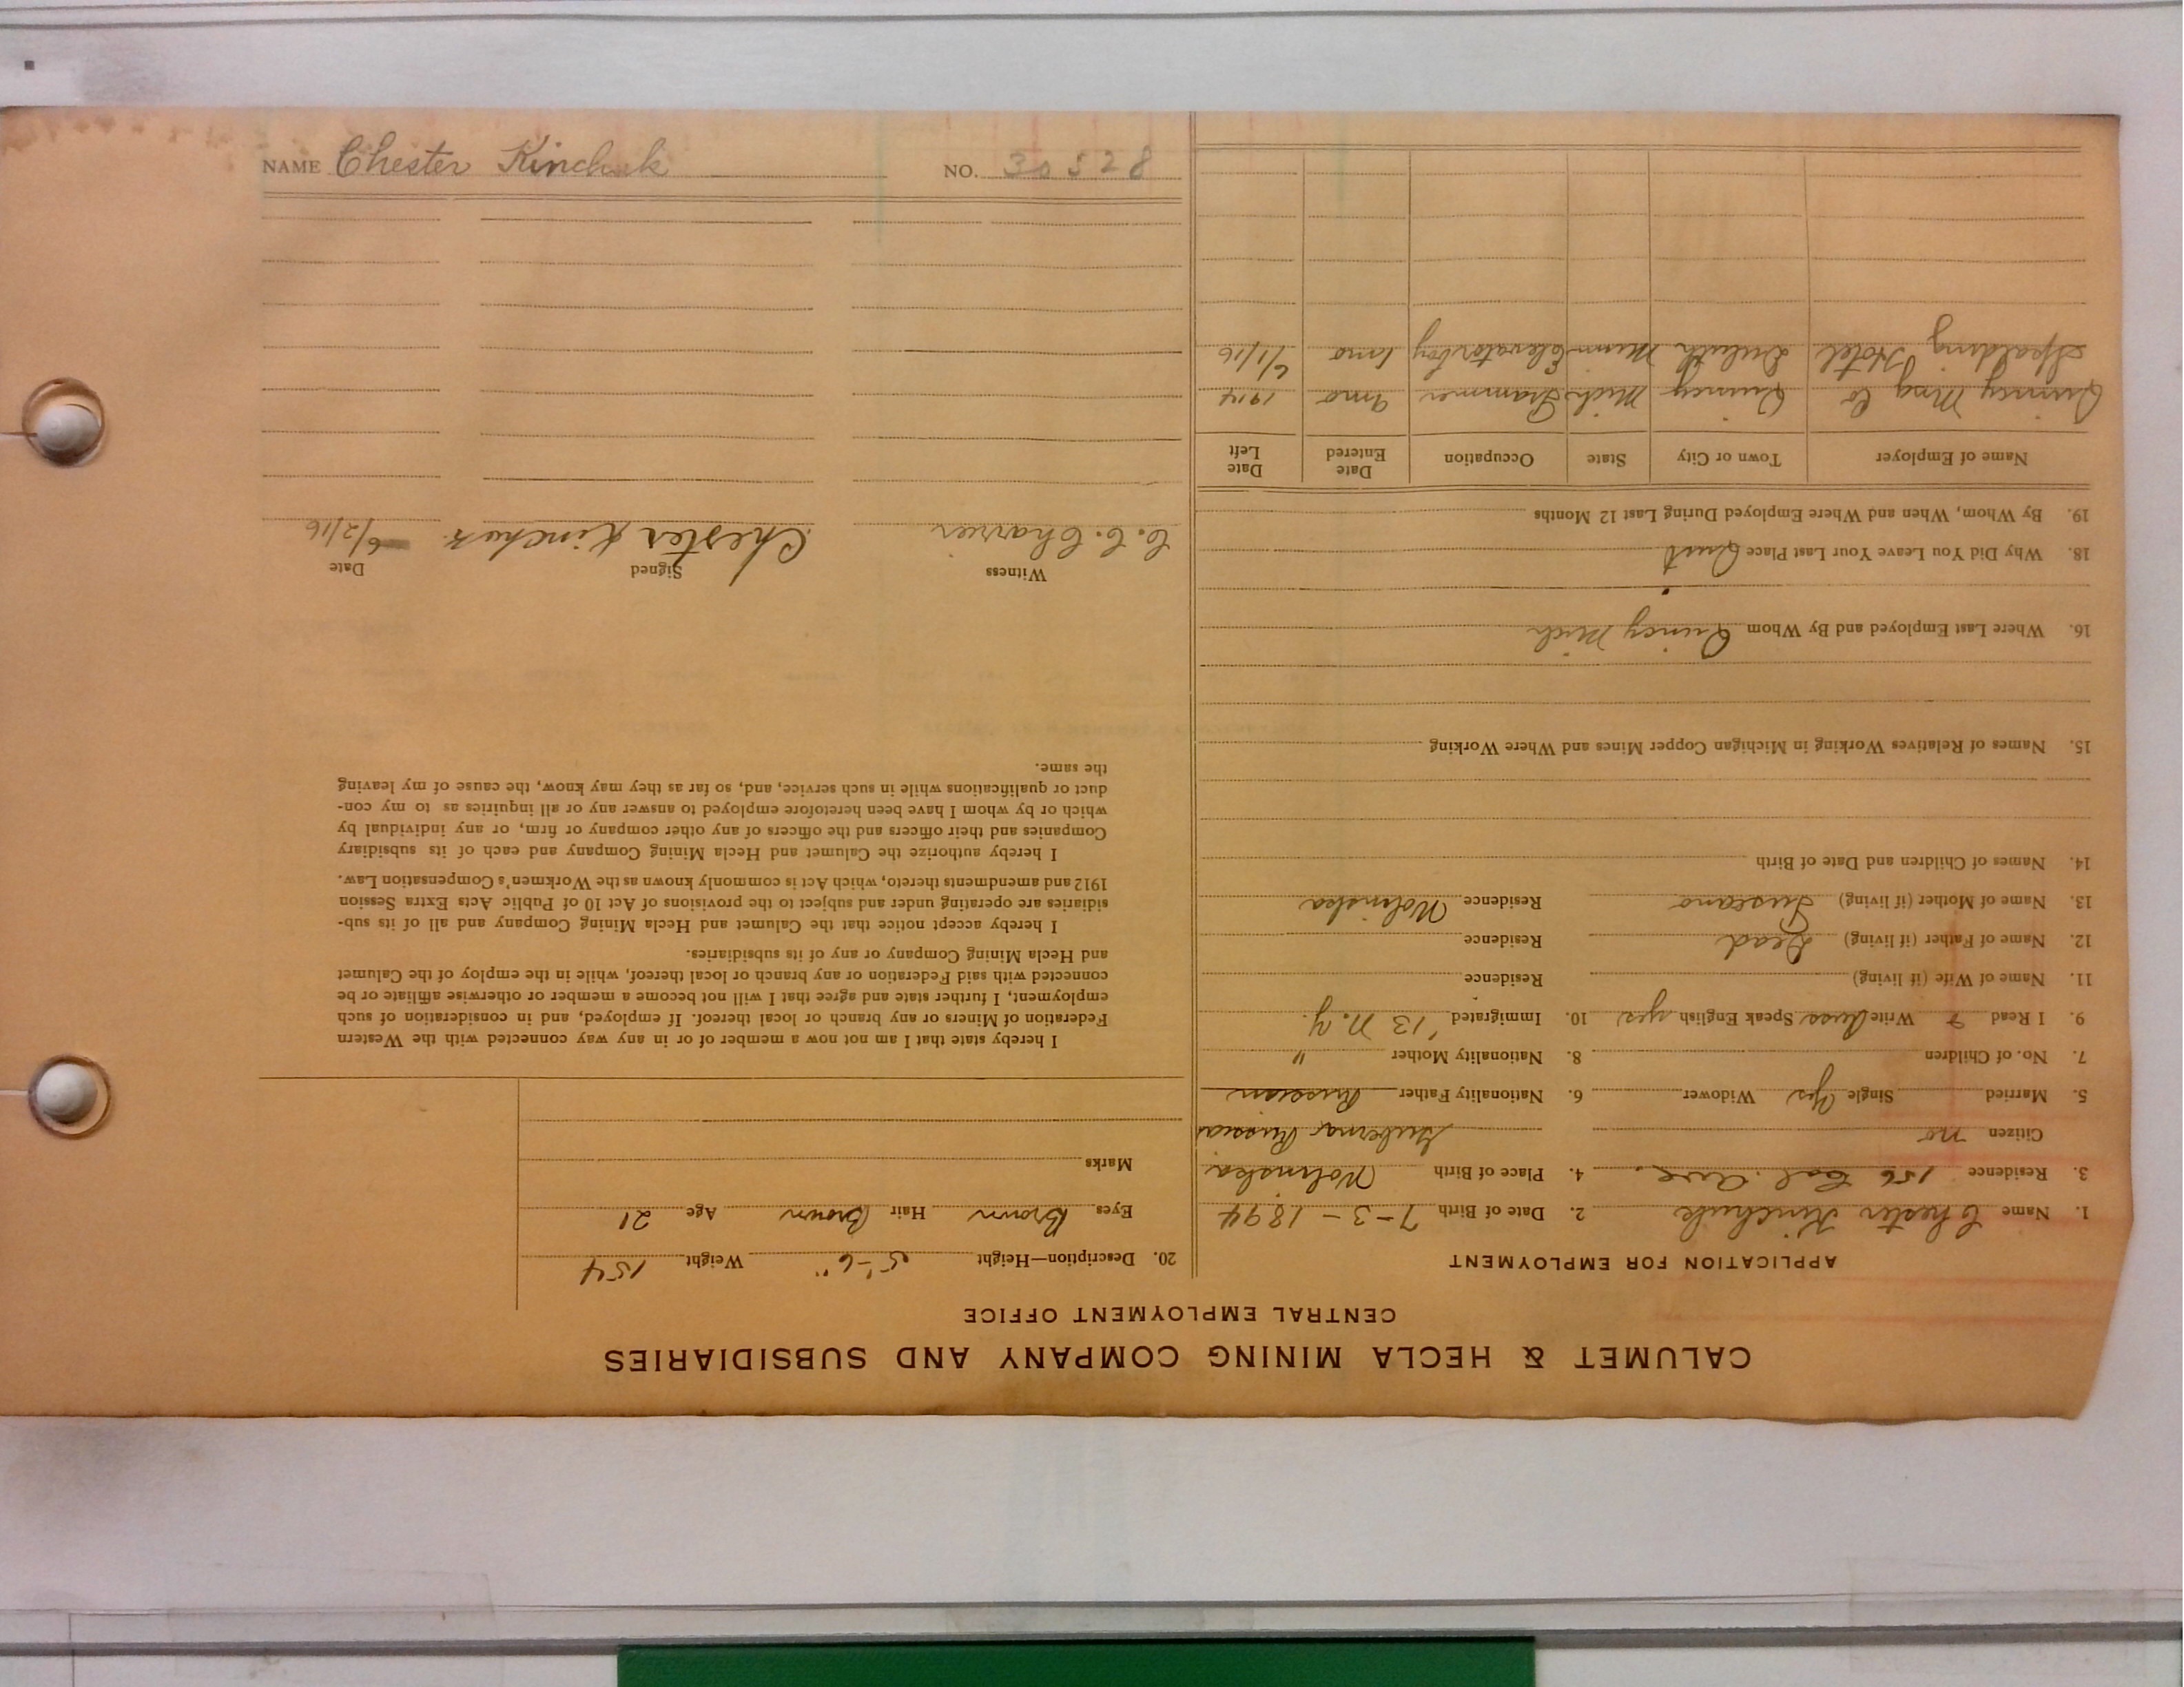 CALUMET & HECLA MINING COMPANY AND SUBSIDIARIES
CENTRAL EMPLOYMENT OFFICE
APPLICATION FOR EMPLOYMENT
1. Name Chester Kinchuk 2. Date of Birth 7-3-1894
3. Residence 156 Cal. Ave. 4. Place of Birth Wolinska
Citizen no Guberna Russia
5. Married Single Yes Widower 6. Nationality Father Russian
7. No. of Children 8. Nationality Mother "
9. I Read & Write Russ Speak English yes 10. Immigrated '13 N.Y.
11. Name of Wife (if living) Residence
12. Name of Father (if living) Dead Residence
13. Name of Mother (if living) Residence Wolinska
14. Names of Children and Date of Birth
15. Names of Relatives Working in Michigan Copper Mines and Where Working
16. Where Last Employed and By Whom Quincy Mich
18. Why Did You Leave Your Last Place Quit
19. By Whom, When and Where Employed During Last 12 Months
Name of Employer Town or City State Occupation Date Entered Date Left
Quincy Mng Co Quincy Mich Trammer 9 mo 1914
Spalding Hotel Duluth Minn Elevator boy 6/1/16
20. Description—Height 5'-6" Weight 154
Eyes Brown Hair Brown Age 21
Marks
I hereby state that I am not now a member of or in any way connected with the Western
Federation of Miners or any branch or local thereof. If employed, and in consideration of such
employment, I further state and agree that I will not become a member or otherwise affiliate or be
connected with said Federation or any branch or local thereof, while in the employ of the Calumet
and Hecla Mining Company or any of its subsidiaries.
I hereby accept notice that the Calumet and Hecla Mining Company and all of its sub-
sidiaries are operating under and subject to the provisions of Act 10 of Public Acts Extra Session
1912 and amendments thereto, which Act is commonly known as the Workmen's Compensation Law.
I hereby authorize the Calumet and Hecla Mining Company and each of its subsidiary
Companies and their officers and the officers of any other company or firm, or any individual by
which or by whom I have been heretofore employed to answer any or all inquiries as to my con-
duct or qualifications while in such service, and, so far as they may know, the cause of my leaving
the same.
Witness Signed Date
C. C. Charrier Chester Kinchuk 6/2/16
NAME Chester Kinchuk NO. 30528